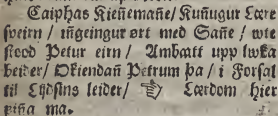 Caiphas Kieñemañe/ Kuñugur Lære
sveirn / mgeingur ørt med Sañe / wte
stood Petur eirn / Ambatt upp lwka
beider/ Okiendañ Petrum þa / i Forsaþ
til Lydsins leider/ ☞ Lærdom hier
piña ma.